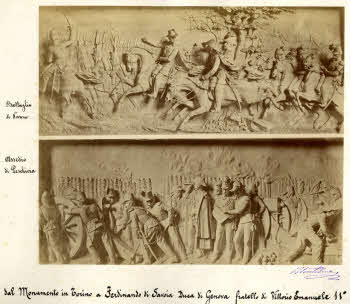 Battaglia
di Novara
Assedio
di Peschiera
dal Monumento in Torino a Ferdinando di Savoia Duca di Genova fratello di Vittorio Emanuele II°